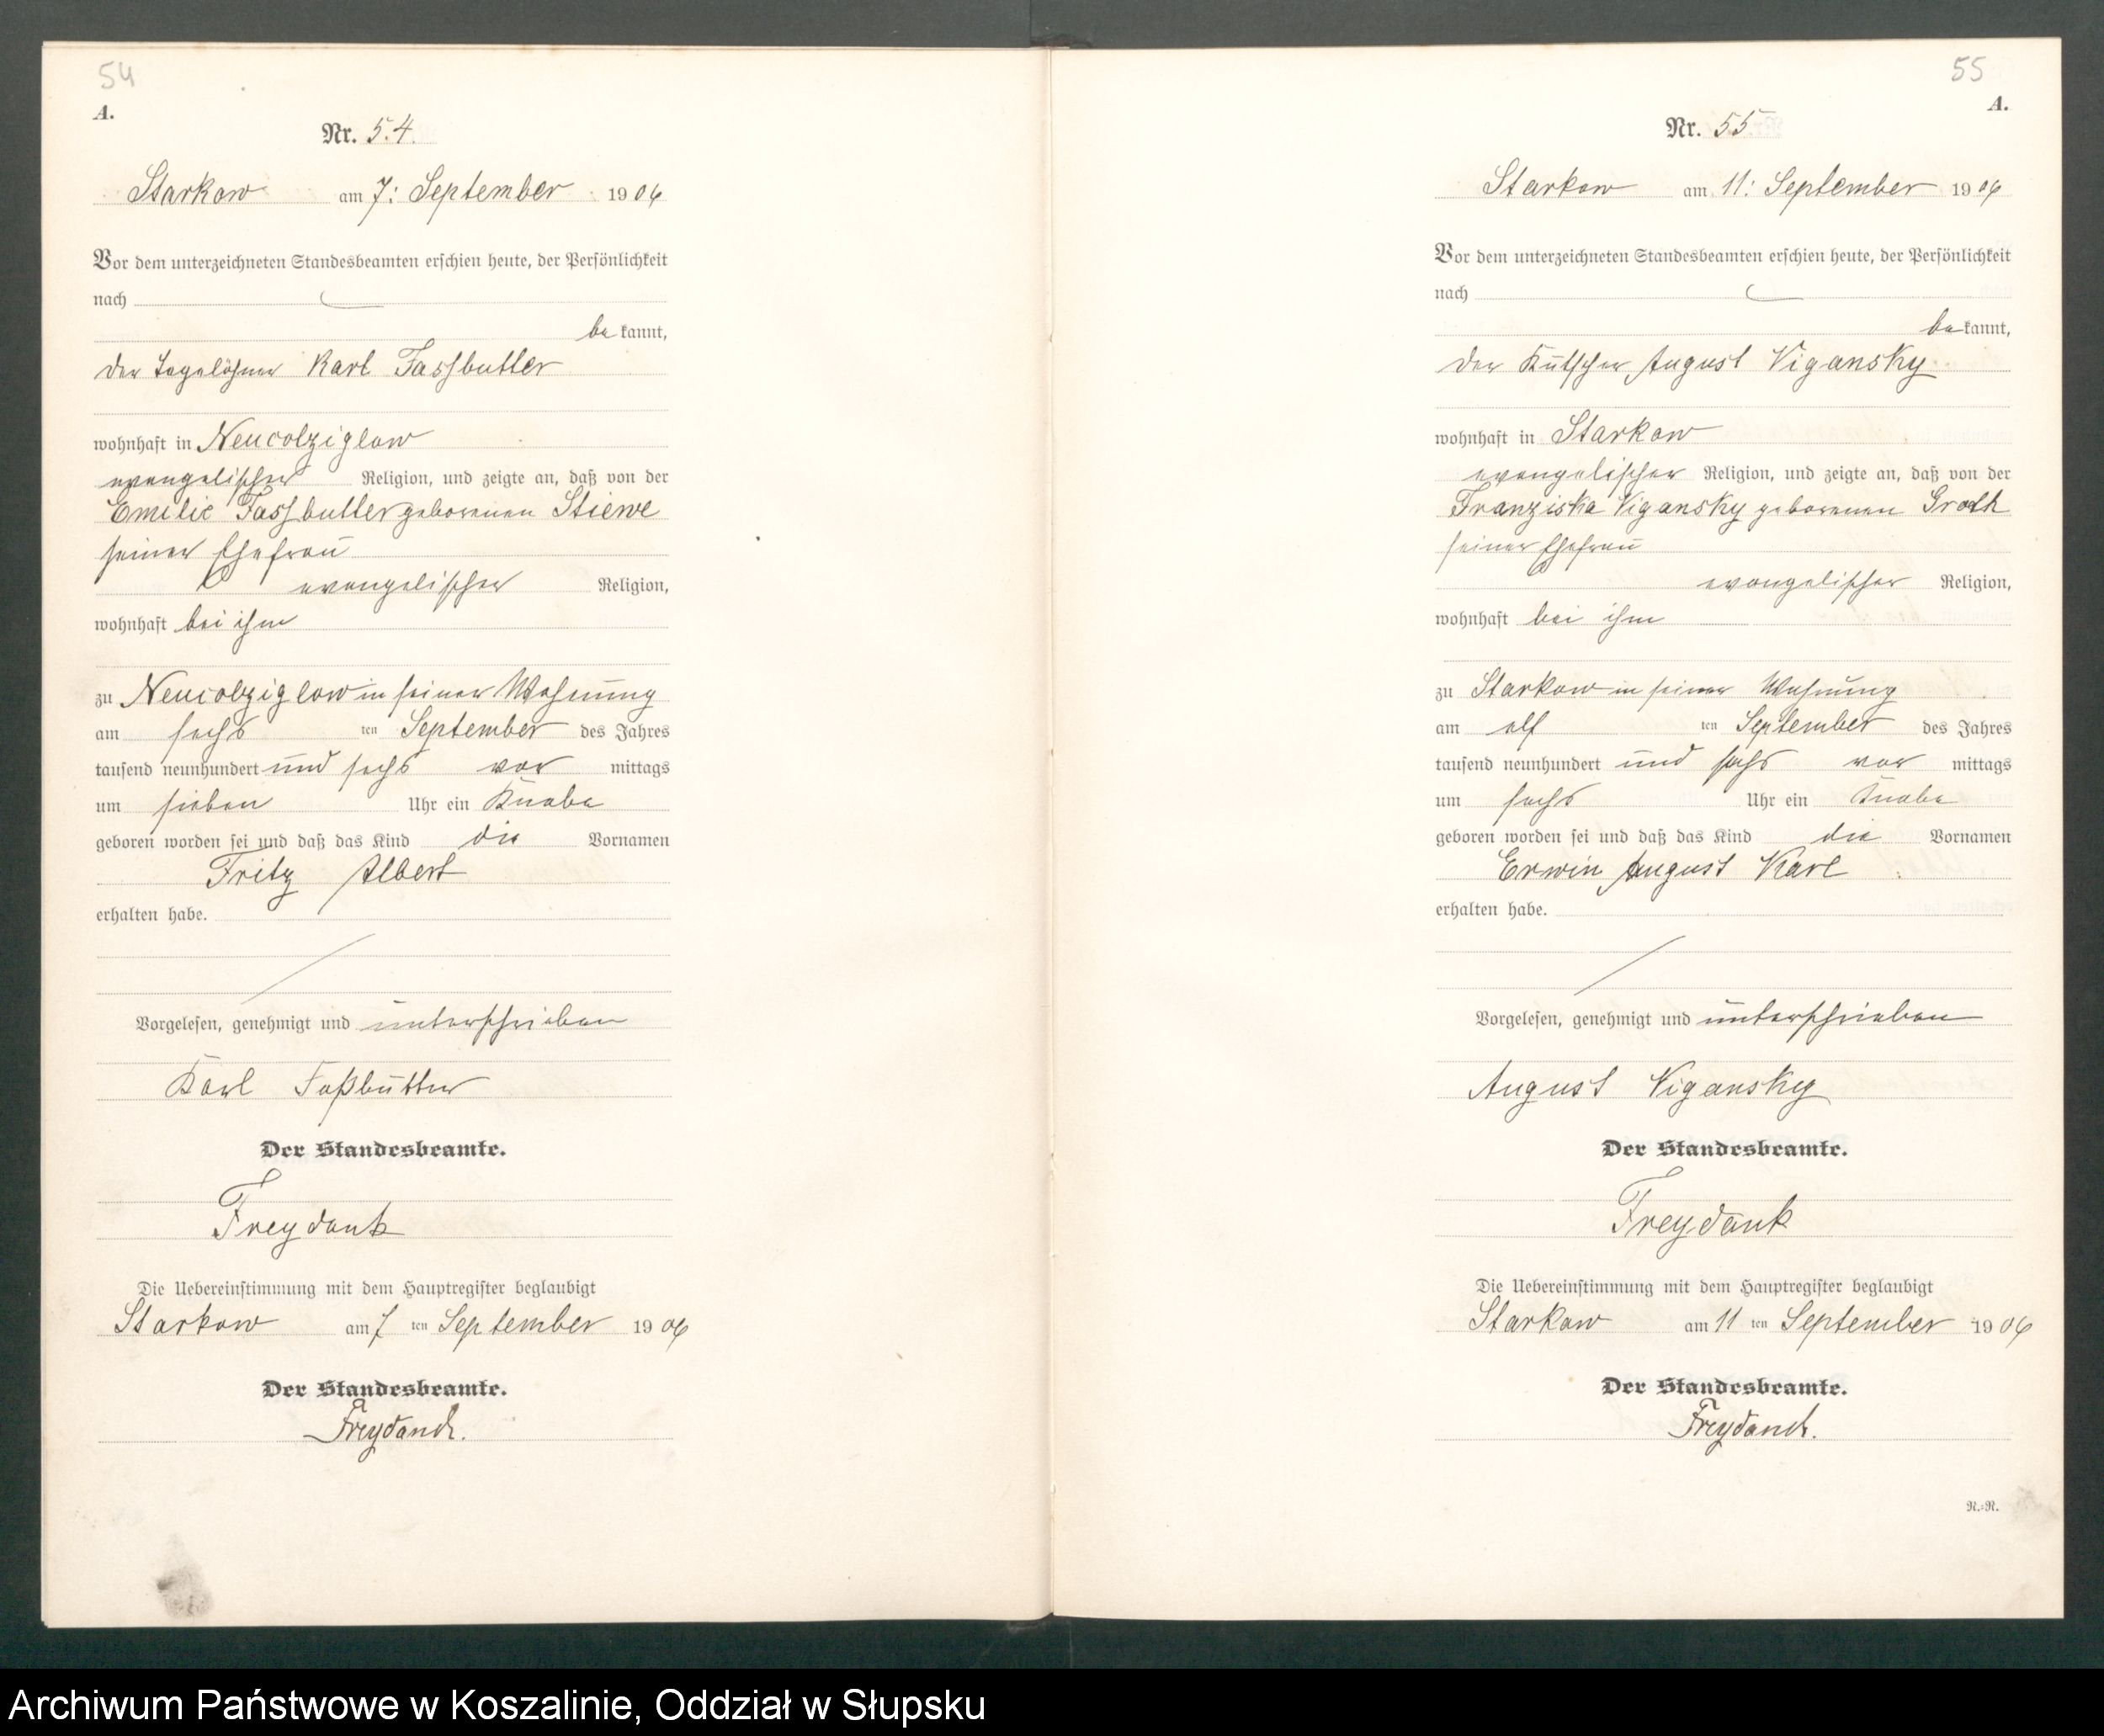 54
A.
Nr. 54.
Starkow am 7: September 1906
Vor dem unterzeichneten Standesbeamten erschien heute, der Persönlichkeit
nach
be kannt,
der Tagelöhner Karl Fassbutter
wohnhaft in Neucolziglow
evangelischer Religion, und zeigte an, daß von der
Emilie Fassbutter geborenen Stiewe
seiner Ehefrau
evangelischer Religion,
wohnhaft bei ihm
zu Neucolziglow in seiner Wohnung
am sechs ten September des Jahres
tausend neunhundert und sechs vor mittags
um sieben Uhr ein Knabe
geboren worden sei und daß das Kind die Vornamen
Fritz Albert
erhalten habe.
Vorgelesen, genehmigt und unterschrieben
Karl Faßbutter
Der Standesbeamte.
Freydank
Die Uebereinstimmung mit dem Hauptregister beglaubigt
Starkow am 7 ten September 1906
Der Standesbeamte.
Freydank.
55
A.
Nr. 55
Starkow am 11: September 1906
Vor dem unterzeichneten Standesbeamten erschien heute, der Persönlichkeit
nach
be kannt,
der Kutscher August Vigansky
wohnhaft in Starkow
evangelischer Religion, und zeigte an, daß von der
Franziska Vigansky geborenen Groth
seiner Ehefrau
evangelischer Religion,
wohnhaft bei ihm
zu Starkow in seiner Wohnung
am elf ten September des Jahres
tausend neunhundert und sechs vor mittags
um sechs Uhr ein Knabe
geboren worden sei und daß das Kind die Vornamen
Erwin August Karl
erhalten habe.
Vorgelesen, genehmigt und unterschrieben
August Vigansky
Der Standesbeamte.
Freydank
Die Uebereinstimmung mit dem Hauptregister beglaubigt
Starkow am 11 ten September 1906
Der Standesbeamte.
Freydank.
R.=R.
Archiwum Państwowe w Koszalinie, Oddział w Słupsku